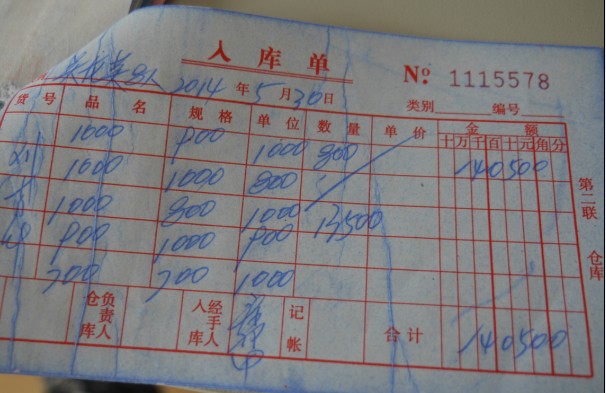 入库单
№ 1115578
2014年5月30日
类别 编号
货号 品名 规格 单位 数量 单价 金额
十万千百十元角分
1000 900 1000 900 140500
1000 1000 800
1000 800 1000 13500
900 1000 900
200 200 1000
第二联 仓库
仓库负责人 入库经手人 记帐 合计 140500